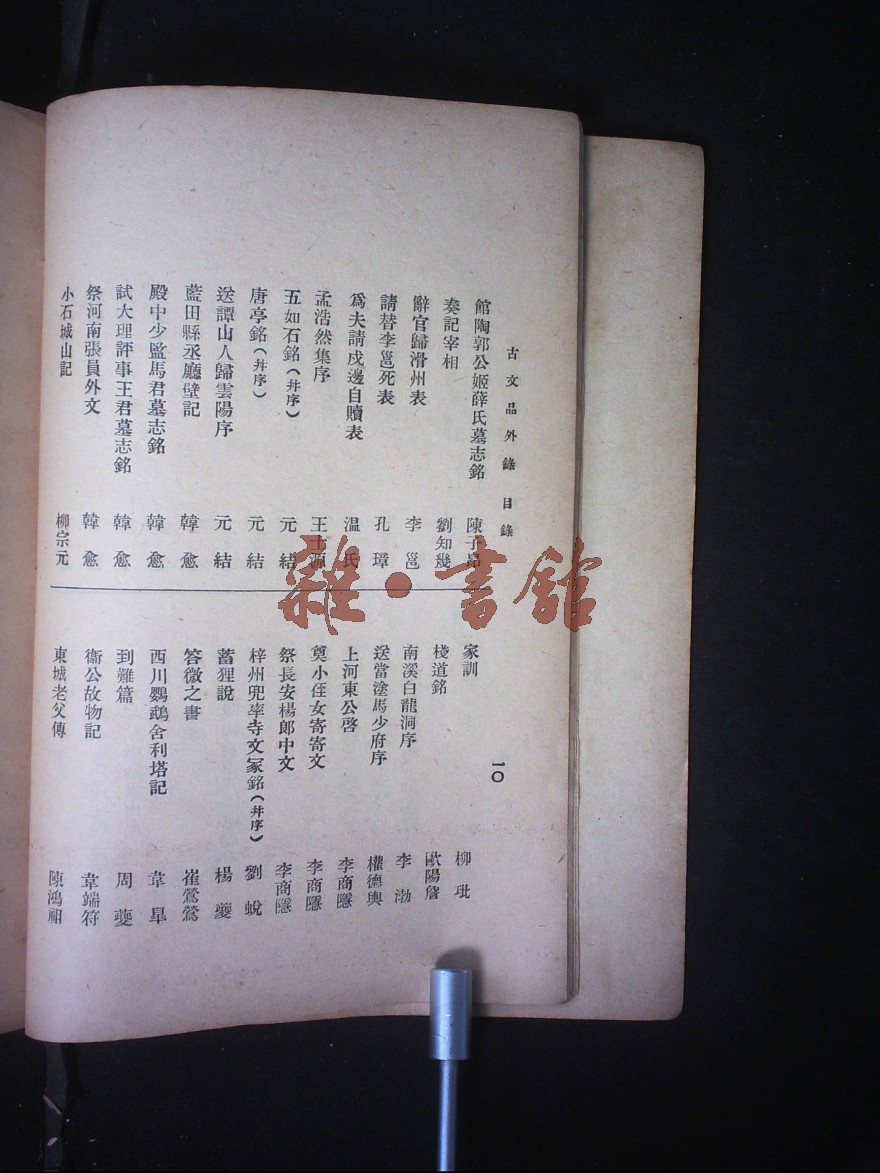 古文品外錄 目錄
一〇
館陶郭公姬薛氏墓志銘 陳子昂
奏記宰相 劉知幾
辭官歸滑州表 李邕
請替李邕死表 孔璋
爲夫請戍邊自贖表 温氏
孟浩然集序 王士源
五如石銘(幷序) 元結
唐亭銘(幷序) 元結
送譚山人歸雲陽序 元結
藍田縣丞廳壁記 韓愈
殿中少監馬君墓志銘 韓愈
試大理評事王君墓志銘 韓愈
祭河南張員外文 韓愈
小石城山記 柳宗元
家訓 柳玭
棧道銘 歐陽詹
南溪白龍洞序 李渤
送當塗馬少府序 權德輿
上河東公啓 李商隱
奠小姪女寄寄文 李商隱
祭長安楊郎中文 李商隱
梓州兜率寺文冢銘(幷序) 劉蛻
蓄狸說 楊夔
答微之書 崔鶯鶯
西川鸚鵡舍利塔記 韋臯
到難篇 周夔
衞公故物記 韋端符
東城老父傳 陳鴻祖
雜·書館